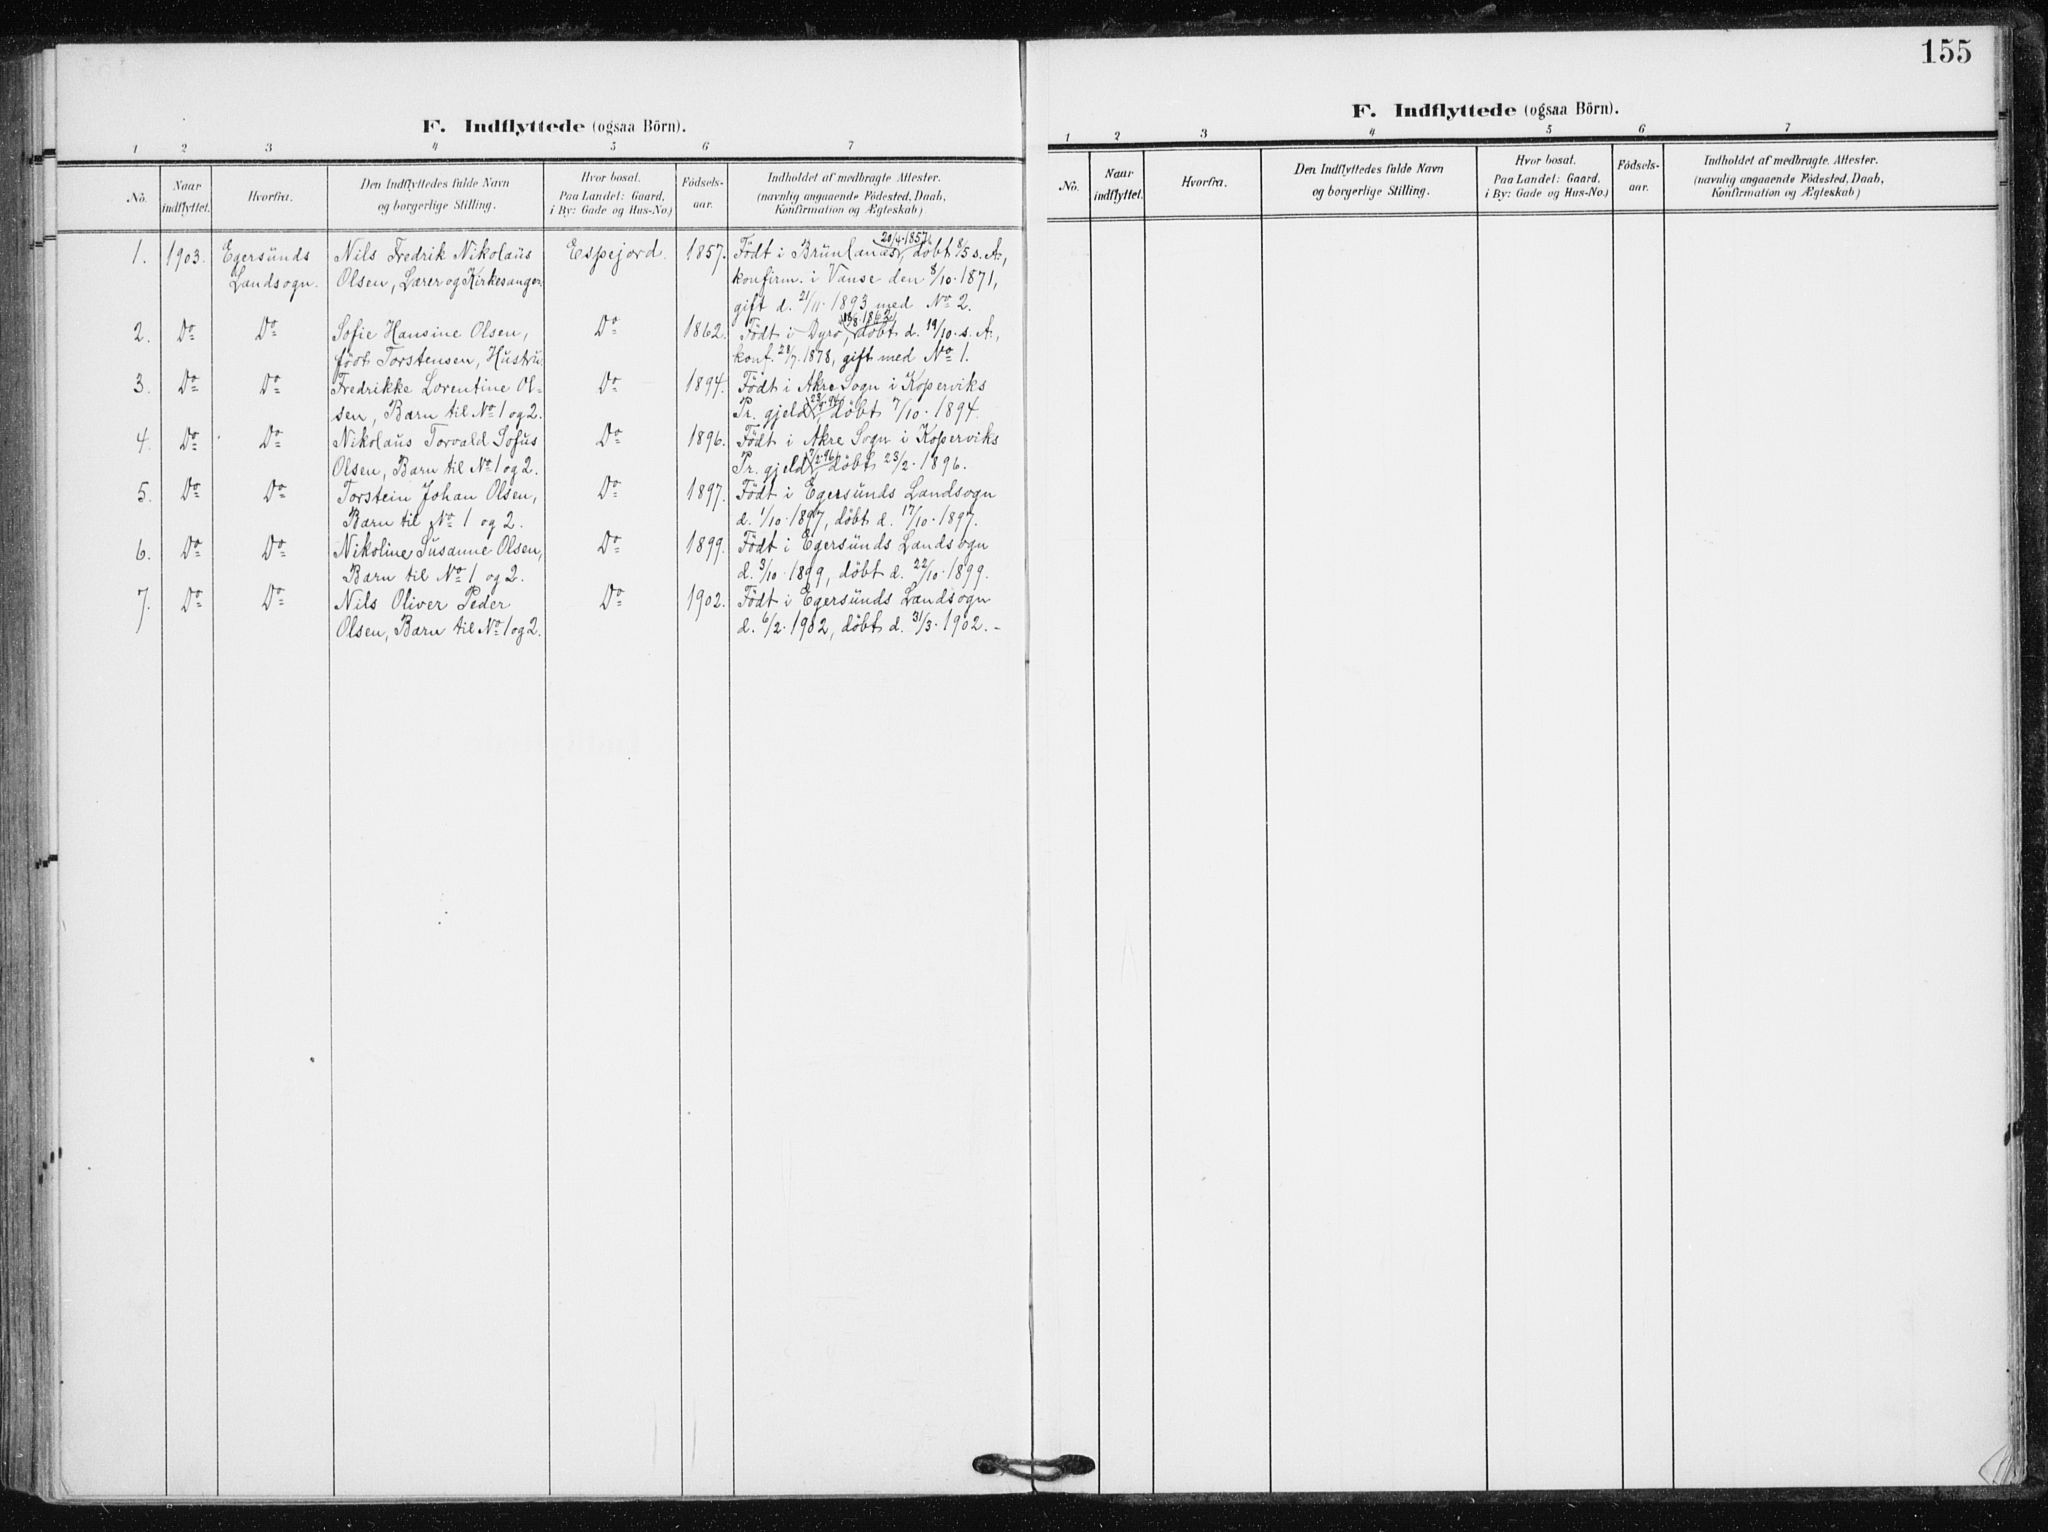 155
F. Indflyttede (ogsaa Börn).
1 2 3 4 5 6 7
No. Naar indflyttet. Hvorfra. Den Indflyttedes fulde Navn og borgerlige Stilling. Hvor bosat. Paa Landet: Gaard, i By: Gade og Hus-No.) Födsels-aar. Indholdet af medbragte Attester. (navnlig angaaende Födested, Daab, Konfirmation og Ægteskab)
1. 1903. Egersunds Nils Fredrik Nikolaus Espejord. 1857. Født i Brunlanæs, 20/4.1857, døbt 8/5 s. A.,
Landsogn. Olsen, Lærer og Kirkesanger konfirm. i Vanse den 8/10.1871,
gift d. 21/11.1893 med No 2.
2. Do Do Sofie Hansine Olsen, Do 1862. Født i Dyrø, døbt d. 19/10. s. A.,
født Torstensen, Hustru konf. 28/7.1878, gift med No 1.
3. Do Do Fredrikke Lorentine Ol- Do 1894. Født i Akre Sogn i Koperviks
sen, Barn til No 1 og 2. Pr. gjeld døbt 7/10.1894.
4. Do Do Nikolaus Torvald Sofus Do 1896. Født i Akre Sogn i Koperviks
Olsen, Barn til No 1 og 2. Pr. gjeld 7/2.96, døbt 23/2.1896.
5. Do Do Torstein Johan Olsen, Do 1897. Født i Egersunds Landsogn
Barn til No 1 og 2. d. 1/10.1897, døbt d. 17/10.1897.
6. Do Do Nikoline Susanne Olsen, Do 1899. Født i Egersunds Landsogn
Barn til No 1 og 2. d. 3/10.1899, døbt d. 22/10.1899.
7. Do Do Nils Oliver Peder Do 1902. Født i Egersunds Landsogn
Olsen, Barn til No 1 og 2. d. 6/2.1902, døbt d. 31/3.1902.-
F. Indflyttede (ogsaa Börn).
1 2 3 4 5 6 7
No. Naar indflyttet. Hvorfra. Den Indflyttedes fulde Navn og borgerlige Stilling. Hvor bosat. Paa Landet: Gaard, i By: Gade og Hus-No.) Födsels-aar. Indholdet af medbragte Attester. (navnlig angaaende Födested, Daab, Konfirmation og Ægteskab)